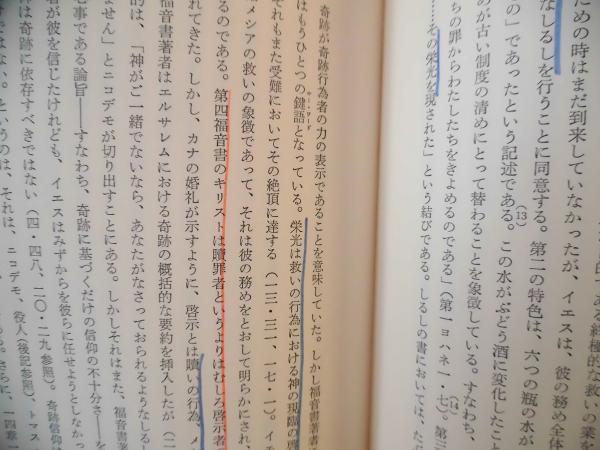 る終極的な救いの業を
ための時はまだ到来していなかったが、イエスは、彼の務め全体
なしるしを行うことに同意する。第二の特色は、六つの瓶の水が
の」であったという記述である。(13)この水がぶどう酒に変化したこと
のが古い制度の清めにとって替わることを象徴している。すなわち、
ちの罪からわたしたちをきよめるのである」(第一ヨハネ一・七)。(14)第三
……その栄光を現された」という結びである。しるしの書においては、ただ
奇跡が奇跡行為者の力の表示であることを意味していた。しかし福音書著者
はもうひとつの鍵語となっている。栄光は救いの行為における神の現臨の啓
それもまた受難においてその絶頂に達する(一三・三一、一七・一)。イエ
メシアの救いの象徴であって、それは彼の務めをとおして明らかにされ、
るのである。第四福音書のキリストは贖罪者というよりはむしろ啓示者
れてきた。しかし、カナの婚礼が示すように、啓示とは贖いの行為、メ
福音書著者はエルサレムにおける奇跡の概括的な要約を挿入したが(二
的は、「神がご一緒でないなら、あなたがなさっておられるようなしるし
ません」とニコデモが切り出すことにある。しかしそれはまた、福音書
事である論旨――すなわち、奇跡に基づくだけの信仰の不十分さ――を
者が彼を信じたけれども、イエスはみずからを彼らに任せようとしなか
仰は奇跡に依存すべきではない(四・四八、二〇・二九参照)。奇跡信仰は
はない。というのは、それは、ニコデモ、役人(後記参照)、トマス